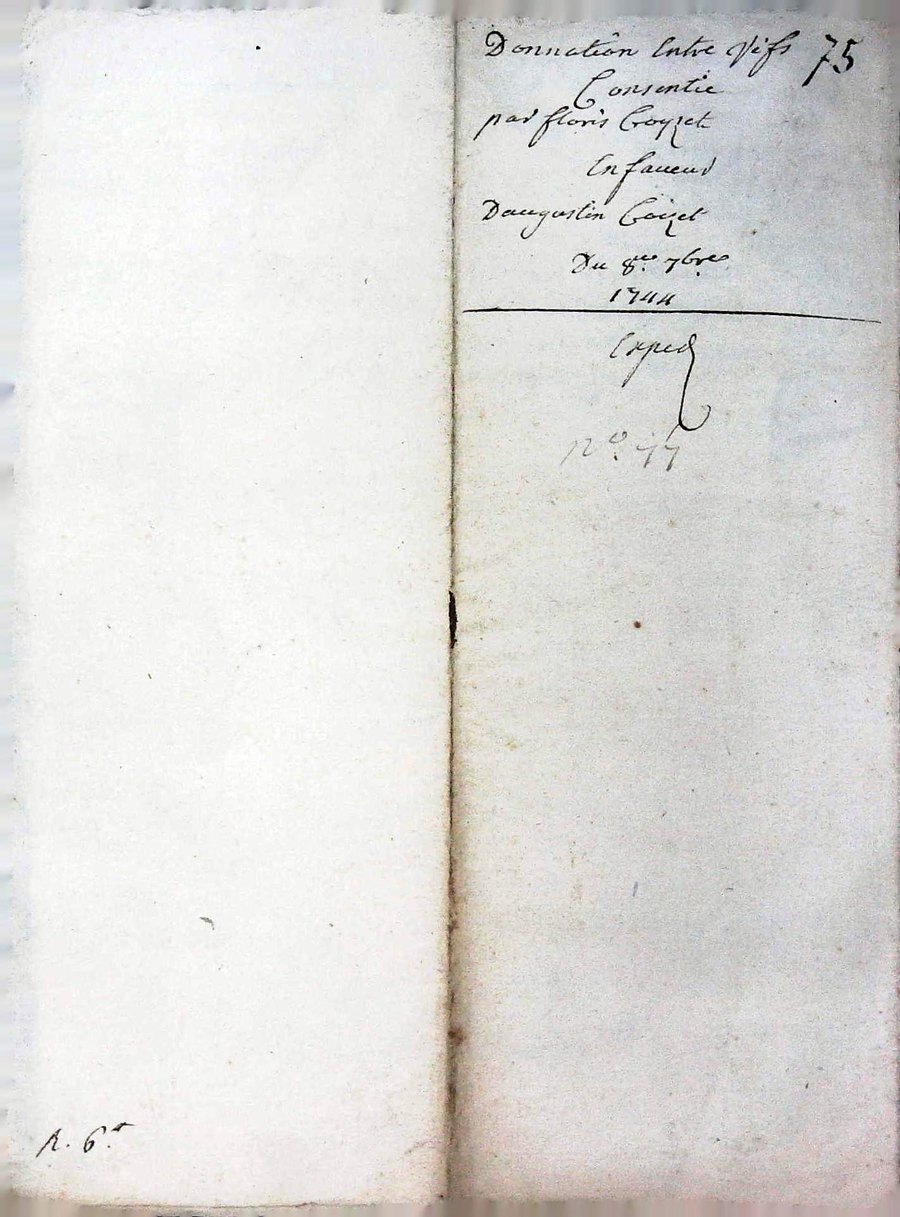 Donnation Entre Vifs 75
Consentie
par floris Coyzet
En faueur
Daugustin Coizet
Du 8.e 7bre
1744
Exped
no. 77
R. 6.